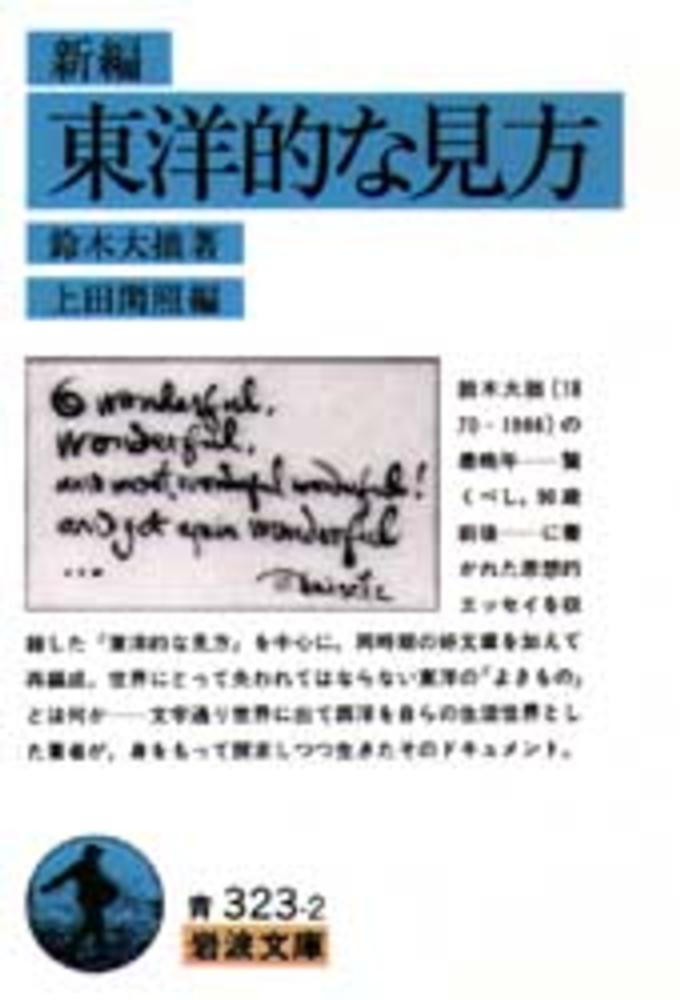 新編
東洋的な見方
鈴木大拙著
上田閑照編
O wonderful,
wonderful,
and most wonderful wonderful!
and yet again wonderful
...
Daisetz
鈴木大拙(18
70-1966)の
最晩年――驚
くべし、90歳
前後――に書
かれた思想的
エッセイを収
録した『東洋的な見方』を中心に、同時期の好文章を加えて
再編成。世界にとって失われてはならない東洋の「よきもの」
とは何か――文字通り世界に出て西洋を自らの生活世界とし
た著者が、身をもって探求しつつ生きたそのドキュメント。
青 323-2
岩波文庫